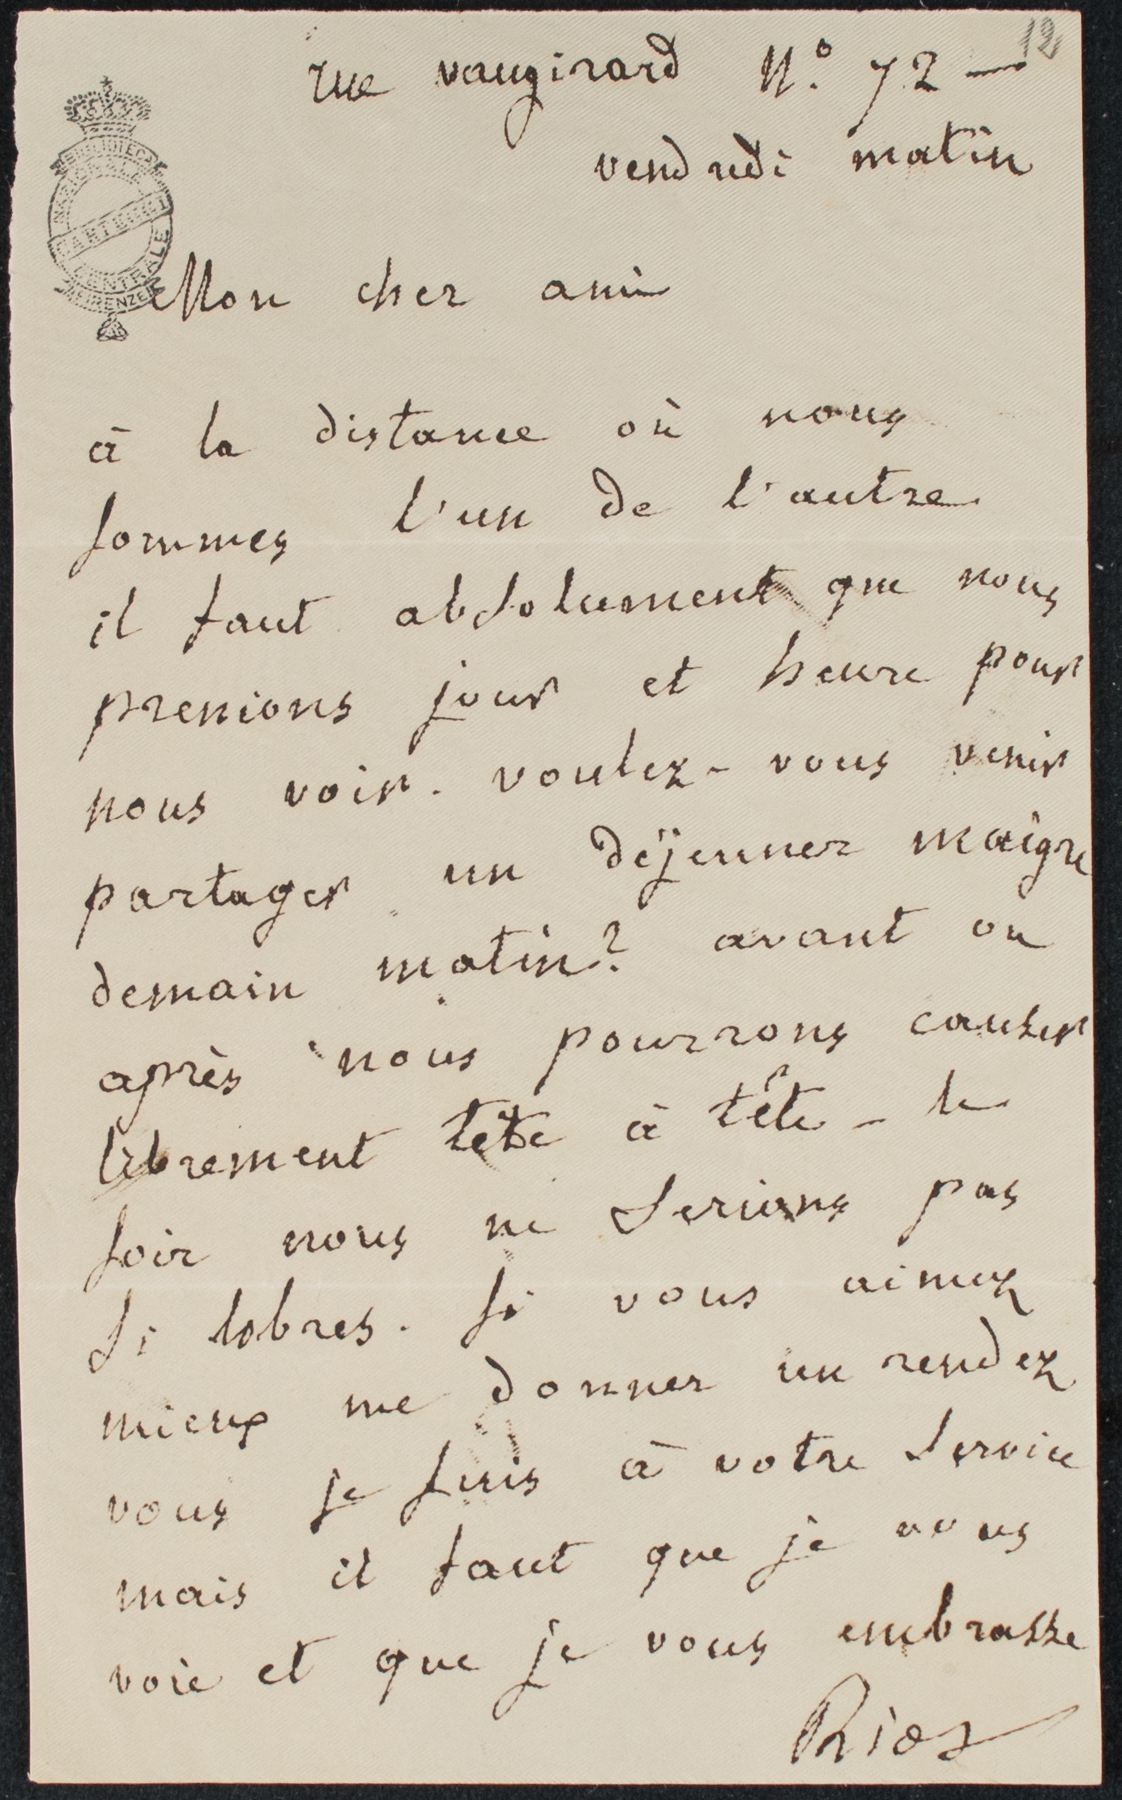 12
rue vaugirard N.º 72 —
vendredi matin
BIBLIOTECA
NAZIONALE
CARTEGGI
CENTRALE
FIRENZE
Mon cher ami
à la distance où nous
sommes l'un de l'autre
il faut absolument que nous
prenions jour et heure pour
nous voir. voulez-vous venir
partager un déjeuner maigre
demain matin? avant ou
après nous pourrons causer
librement tête à tête - le
soir nous ne serions pas
si lobres. si vous aimez
mieux me donner un rendez
vous je suis à votre service
mais il faut que je vous
voie et que je vous embrasse
Rios